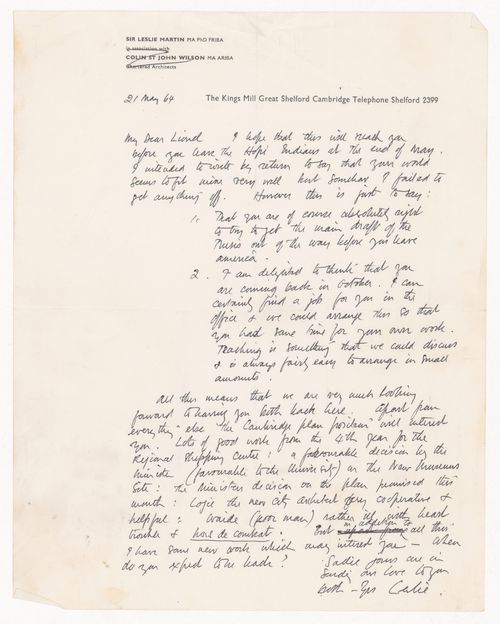 SIR LESLIE MARTIN MA PhD FRIBA
in association with
COLIN ST JOHN WILSON MA ARIBA
Chartered Architects
21 May 64 The Kings Mill Great Shelford Cambridge Telephone Shelford 2399
My Dear Lionel I hope that this will reach you
before you leave the Hopi Indians at the end of May.
I intended to write by return to say that your world
seems to fit mine very well but somehow I failed to
get anything off. However this is just to say:
1. That you are of course absolutely right
to try to get the main draft of the
Thesis out of the way before you leave
america.
2. I am delighted to think that you
are coming back in October. I can
certainly find a job for you in the
office & we could arrange this so that
you had some time for your own work.
Teaching is something that we could discuss
& is always fairly easy to arrange in small
amounts.
All this means that we are very much looking
forward to having you both back here. Apart from
everything else the Cambridge plan position will interest
you. Lots of good work from the 4th year for the
Regional Shopping Centre: a favourable decision by the
Minister (favourable to the University) on the New Museums
Site: the Ministers decision on the plan promised this
month: Logie the new city architect very cooperative &
helpful: (poor man) rather ill with heart
trouble & hors de combat. But in addition to all this
I have some new work which may interest you — When
do you expect to be back? Sadie joins me in
sending our love to you
both — Yrs Leslie.